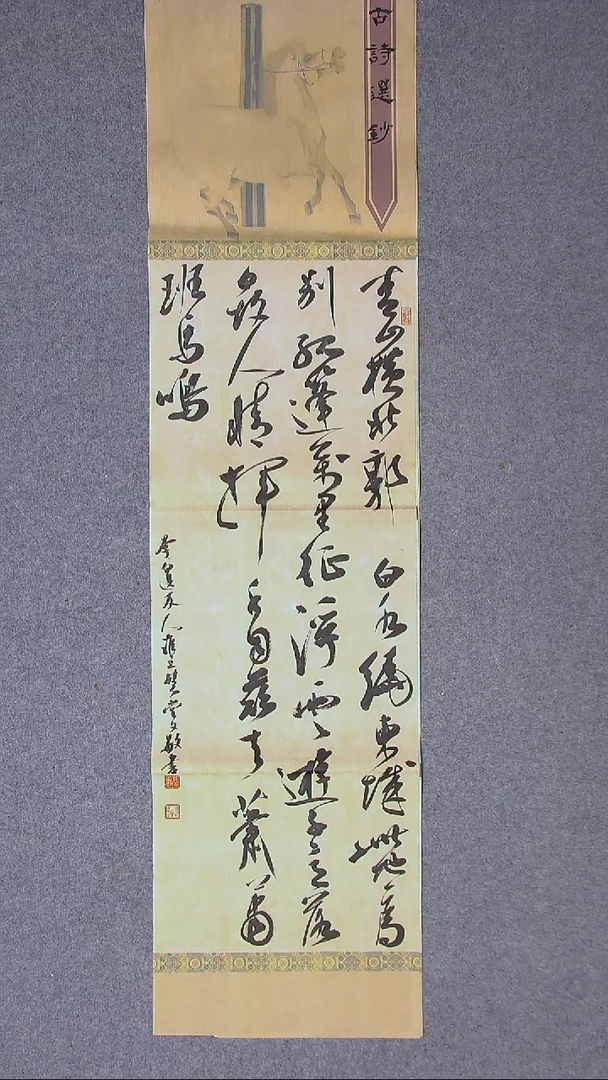 古詩選鈔
青山橫北郭 白水繞東城此地一為
別孤蓬萬里征浮雲遊子意落
日故人情揮手自茲去蕭蕭
班馬鳴
李白送友人 書